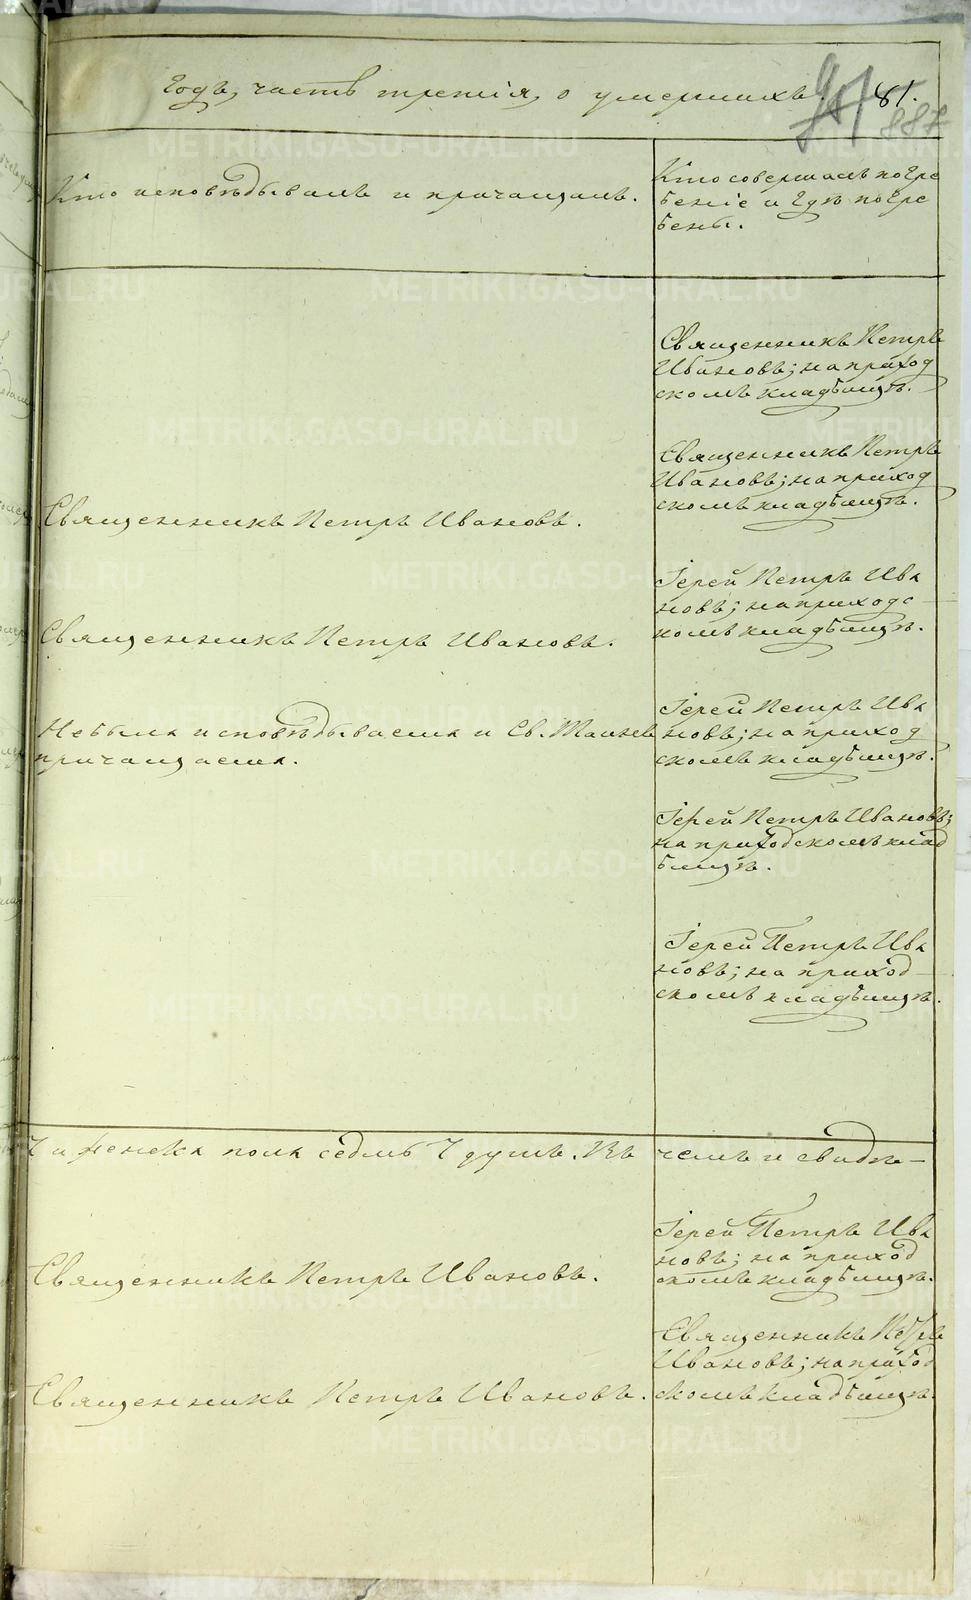 годъ, часть третія, о умершихъ.
81.
887
Кто исповѣдывалъ и причащалъ.
Кто совершалъ погре
беніе и гдѣ погре
бены.
Священникъ Петръ
Ивановъ; на приход
скомъ кладбищѣ.
Священникъ Петръ Ивановъ.
Священникъ Петръ
Ивановъ; на приход
скомъ кладбищѣ.
Священникъ Петръ Ивановъ.
Іерей Петръ Ива
новъ; на приходс
комъ кладбищѣ.
Небыла исповѣдываема и Св. Таинъ
причащаема.
Іерей Петръ Ива
новъ; на приход
скомъ кладбищѣ.
Іерей Петръ Ивановъ;
на приходскомъ клад
бищѣ.
Іерей Петръ Ива
новъ; на приход
скомъ кладбищѣ.
7 и женска пола седмь 7 душъ. Въ чемъ и свидѣ
Священникъ Петръ Ивановъ.
Іерей Петръ Ива
новъ; на приход
скомъ кладбищѣ.
Священникъ Петръ Ивановъ.
Священникъ Петръ
Ивановъ; на приход
скомъ кладбищѣ.
METRIKI.GASO-URAL.RU